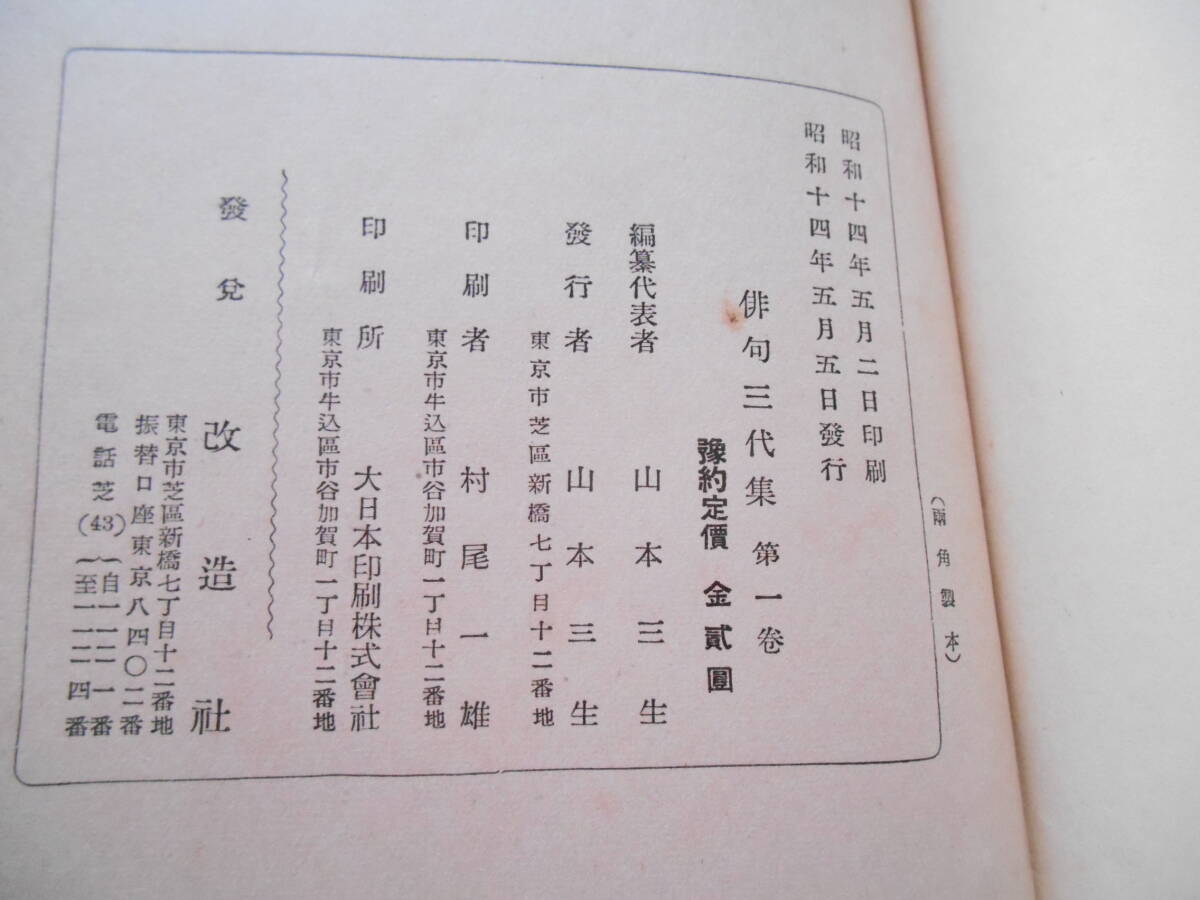 昭和十四年五月二日印刷
昭和十四年五月五日發行
俳句三代集 第一卷
豫約定價 金貳圓
編纂代表者 山本三生
發行者 山本三生
東京市芝區新橋七丁目十二番地
印刷者 村尾一雄
東京市牛込區市谷加賀町一丁目十二番地
印刷所 大日本印刷株式會社
東京市牛込區市谷加賀町一丁目十二番地
發兌 改造社
東京市芝區新橋七丁目十二番地
振替口座東京八四〇二番
電話芝(43)自一一二一番
至一一二四番
(兩角製本)